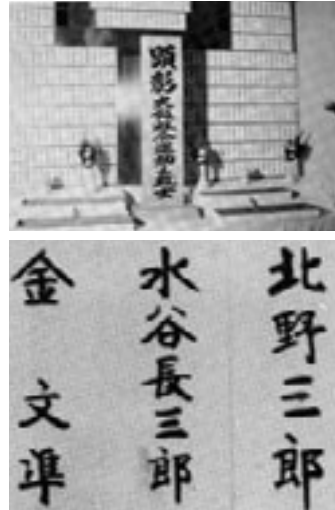 顕彰
北野三郎
水谷長三郎
金 文準